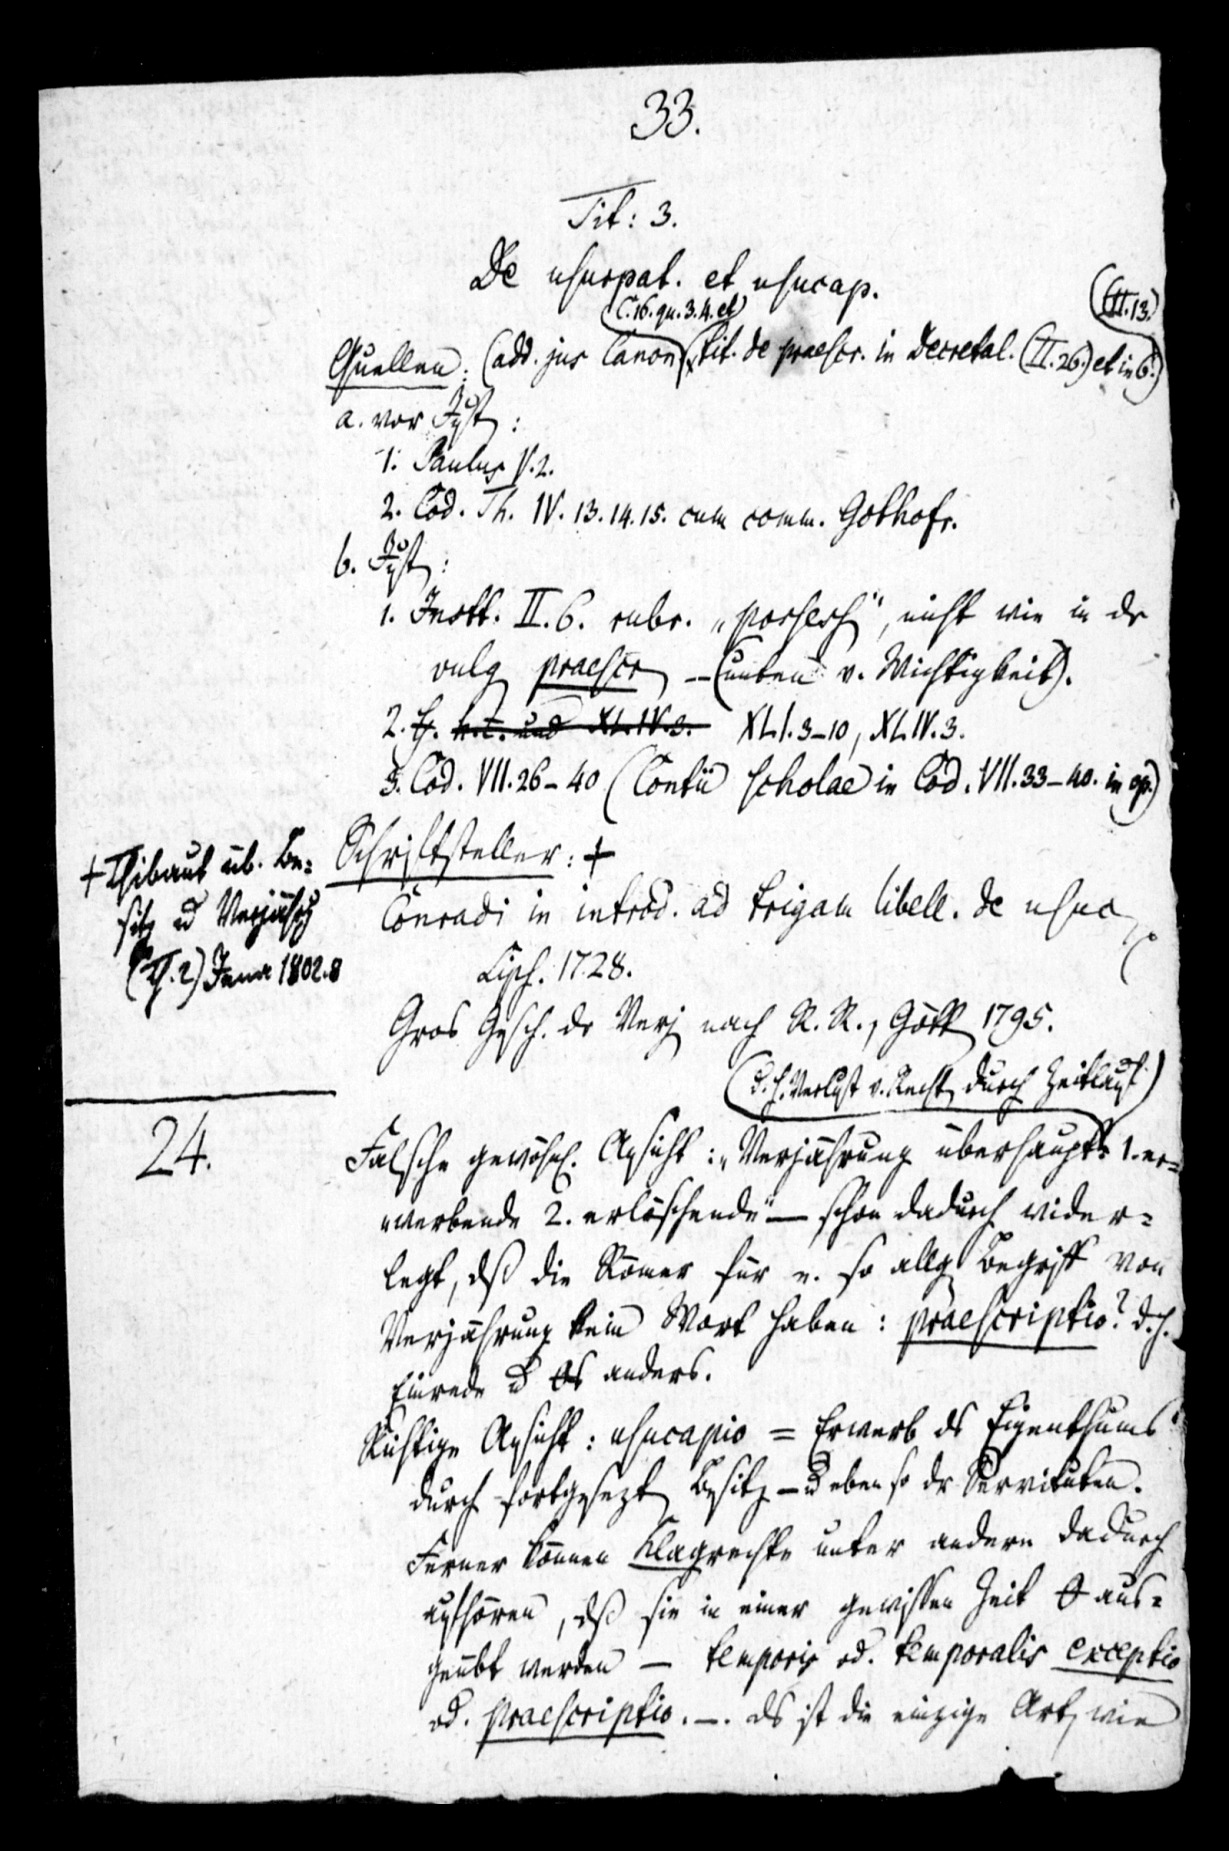 33.
Tit: 3.
De usurpat. et usucap.
(C. 16. qu. 3. 4. et)
(III. 13.)
Quellen: (add. jus Canon. tit. de praescr. in Decretal. (II. 26.) et in 6.)
a. vor Just:
1. Paulus V. 2.
2. Cod. Th. IV. 13. 14. 15. cum comm. Gothofr.
b. Just:
1. Instt. II. 6. rubr. „possess“, nicht wie in dr
vulg praescr – (unten v. Wichtigkeit).
2. h. t. und XLIV. 3. XLI. 3–10, XLIV. 3.
3. Cod. VII. 26–40 (Contii scholae in Cod. VII. 33–40. in op.)
Schriftsteller: +
+ Thibaut üb. Be=
sitz u Verjährg
(Th. 2) Jena 1802. 8
Conradi in introd. ad trigam libell. de usuc
Lips. 1728.
Gros Gesch. dr Verj nach R. R., Gött 1795.
(d. h. Verlust v. Recht durch Zeitlauf)
24.
Falsche gewöhnl. Ansicht: „Verjährung überhaupt: 1. er=
werbende 2. erlöschende“ – schon dadurch wider=
legt, dß die Römer für e. so allg Begriff von
Verjährung kein Wort haben: praescriptio? d. h.
Einrede u 0s anders.
Richtige Ansicht: usucapio = Erwerb ds Eigenthums
durch fortgesezt Besitz – u eben so dr Servituten.
Ferner können Klagrechte unter andern dadurch
aufhören, dß sie in einer gewissen Zeit 0 aus=
geübt werden – temporis od. temporalis exceptio
od. praescriptio. –. ds ist die einzige Art, wie